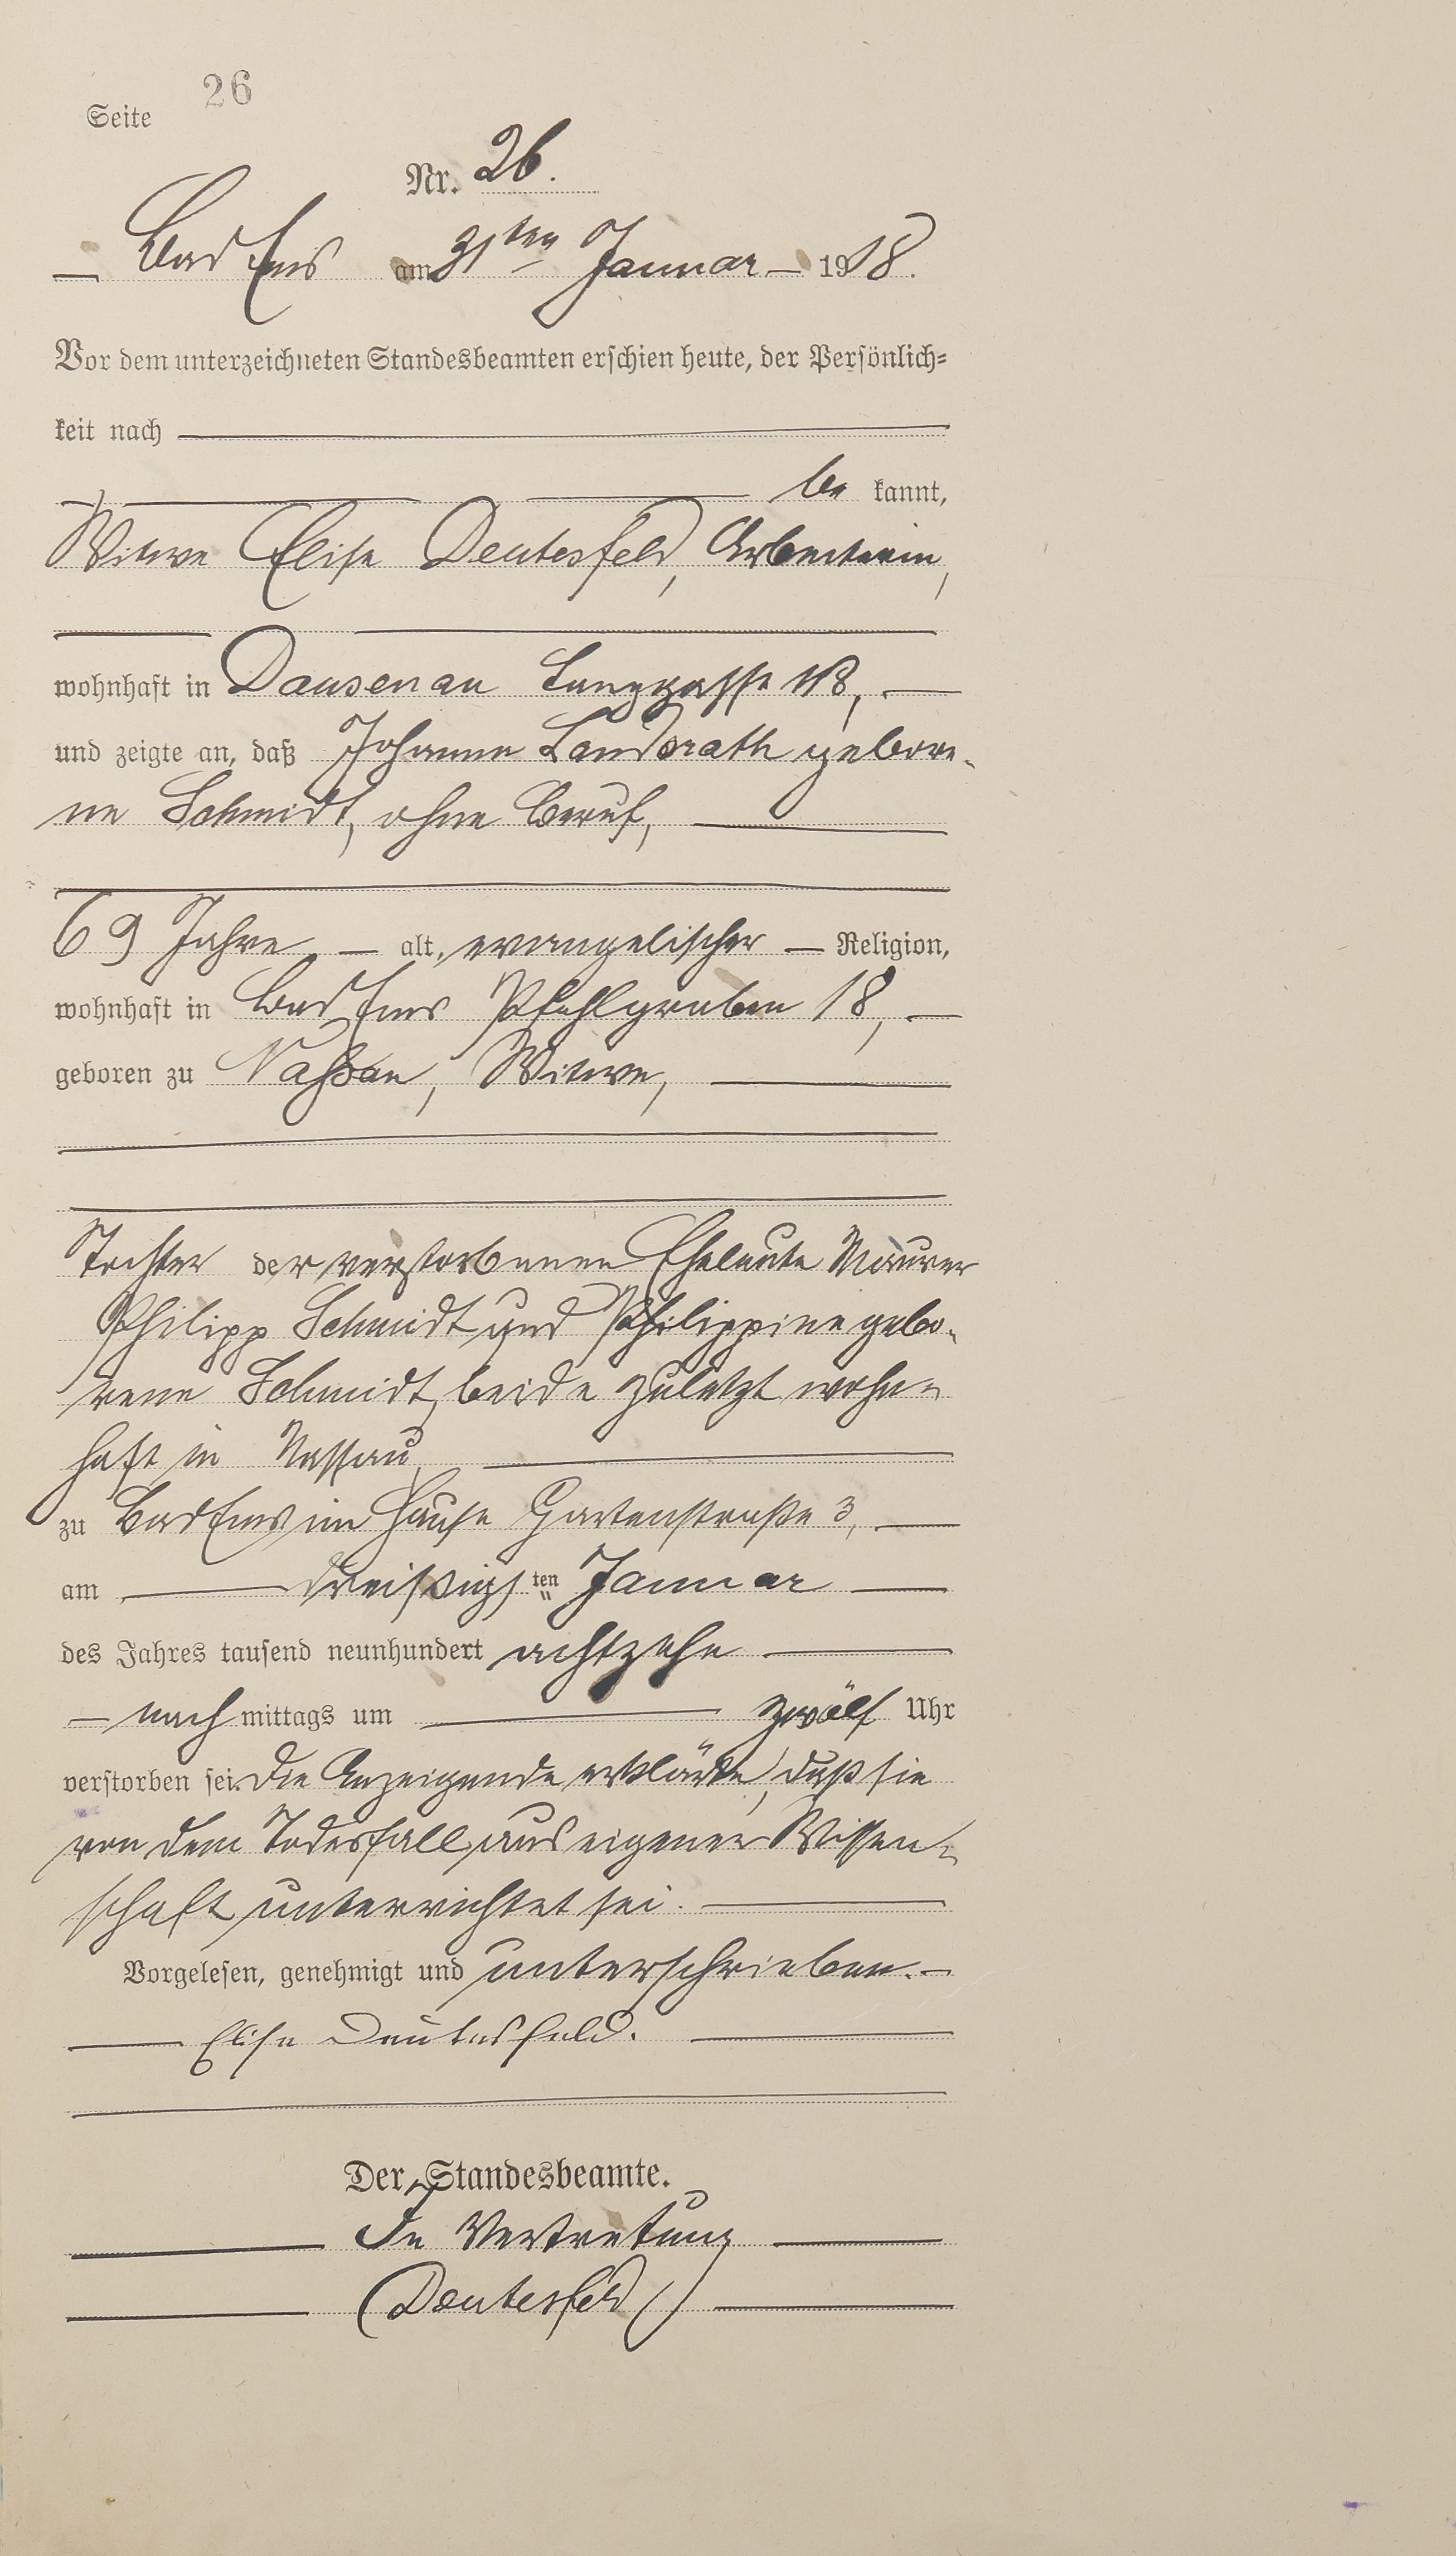 Seite 26
Nr. 26.
Bad Ems am 31ten Januar 1918.
Vor dem unterzeichneten Standesbeamten erschien heute, der Persönlich-
keit nach
be kannt,
Witwe Elise Deutesfeld, Arbeiterin,
wohnhaft in Dausenau Langgasse 118,
und zeigte an, daß Johanna Landsrath gebore-
ne Schmidt, ohne Beruf,
69 Jahre alt, evangelischer Religion,
wohnhaft in Bad Ems Pfahlgraben 18,
geboren zu Naßau, Witwe,
Tochter der verstorbenen Eheleute Maurer
Philipp Schmidt und Philippine gebo-
rene Schmidt, beide zuletzt wohn-
haft in Nassau,
zu Bad Ems im Hause Gartenstraße 3,
am dreißigsten Januar
des Jahres tausend neunhundert achtzehn
nach mittags um zwölf Uhr
verstorben sei. Die Anzeigende erklärte, daß sie
von dem Todesfall aus eigener Wissen-
schaft unterrichtet sei.
Vorgelesen, genehmigt und unterschrieben.
Elise Deutesfeld.
Der Standesbeamte.
In Vertretung
Deutesfeld